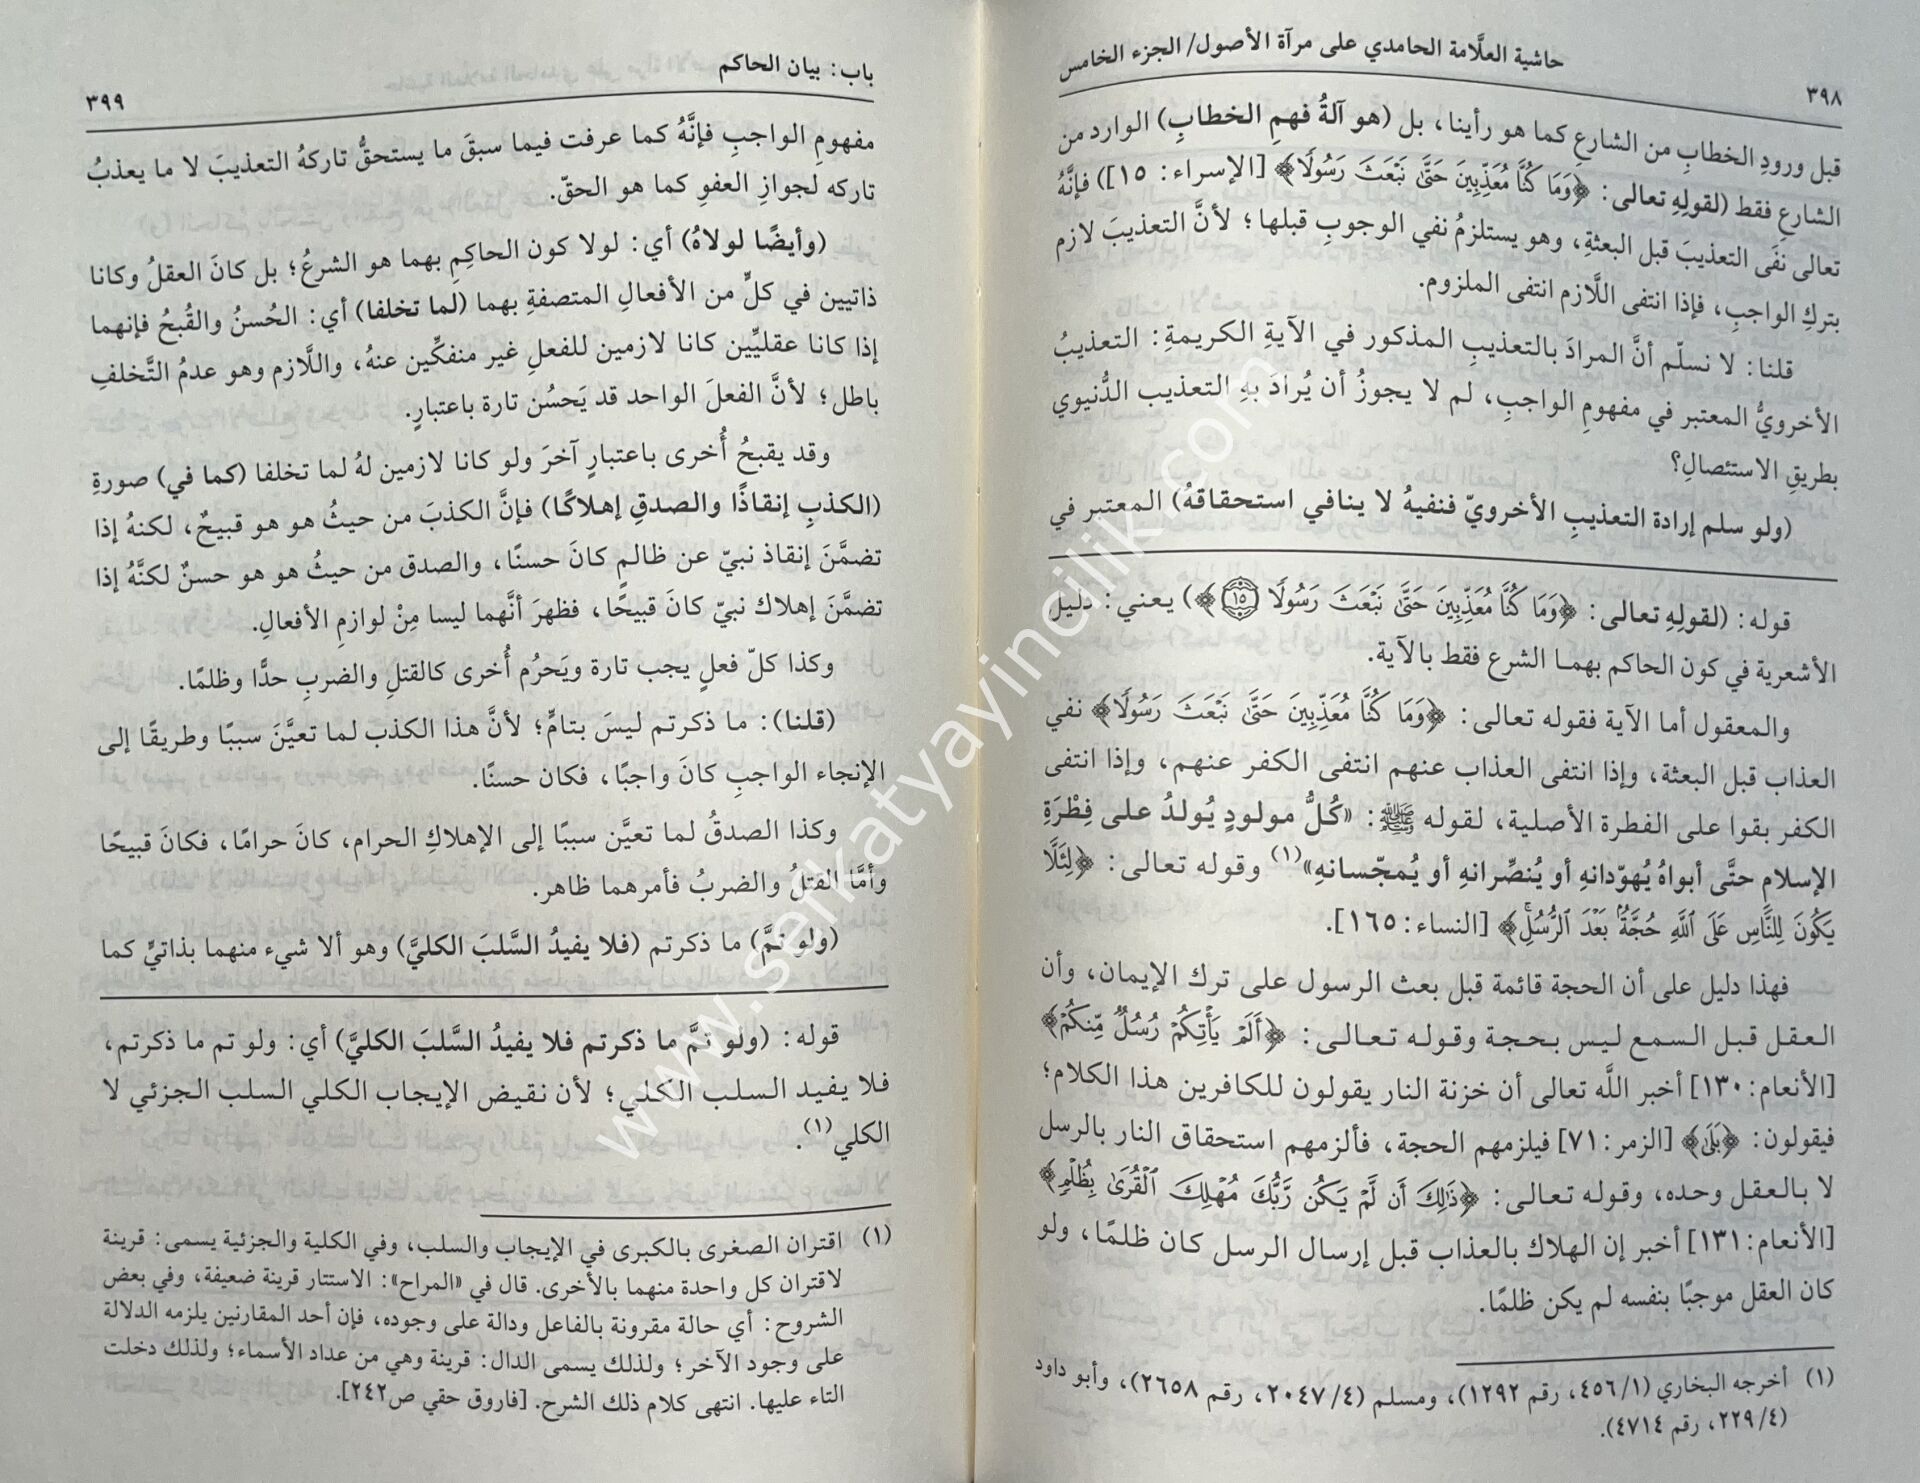 حاشية العلَّامة الحامدي على مرآة الأصول/ الجزء الخامس
٣٩٨
قبل ورودِ الخطابِ من الشارعِ كما هو رأينا، بل (هو آلةُ فهمِ الخطابِ) الوارد من
الشارعِ فقط (لقولِهِ تعالى: ﴿وَمَا كُنَّا مُعَذِّبِينَ حَتَّىٰ نَبْعَثَ رَسُولًا﴾ [الإسراء: ١٥]) فإنَّهُ
تعالى نفَى التعذيبَ قبل البعثةِ، وهو يستلزمُ نفي الوجوبِ قبلها؛ لأنَّ التعذيبَ لازم
بتركِ الواجبِ، فإذا انتفى اللَّازم انتفى الملزوم.
قلنا: لا نسلّم أنَّ المرادَ بالتعذيبِ المذكور في الآيةِ الكريمةِ: التعذيبُ
الأخرويُّ المعتبر في مفهومِ الواجبِ، لم لا يجوزُ أن يُرادَ بهِ التعذيب الدُّنيوي
بطريقِ الاستئصالِ؟
(ولو سلم إرادة التعذيبِ الأخرويّ فنفيهُ لا ينافي استحقاقهُ) المعتبر في
قوله: (لقولِهِ تعالى: ﴿وَمَا كُنَّا مُعَذِّبِينَ حَتَّىٰ نَبْعَثَ رَسُولًا ١٥﴾) يعني: دليل
الأشعرية في كون الحاكم بهما الشرع فقط بالآية.
والمعقول أما الآية فقوله تعالى: ﴿وَمَا كُنَّا مُعَذِّبِينَ حَتَّىٰ نَبْعَثَ رَسُولًا﴾ نفي
العذاب قبل البعثة، وإذا انتفى العذاب عنهم انتفى الكفر عنهم، وإذا انتفى
الكفر بقوا على الفطرة الأصلية، لقوله ﷺ: «كُلُّ مولودٍ يُولدُ على فِطْرَةِ
الإسلامِ حتَّى أبواهُ يُهوّدانهِ أو يُنصِّرانهِ أو يُمجّسانهِ»(١) وقوله تعالى: ﴿لِئَلَّا
يَكُونَ لِلنَّاسِ عَلَى ٱللَّهِ حُجَّةٌۢ بَعْدَ ٱلرُّسُلِ﴾ [النساء: ١٦٥].
فهذا دليل على أن الحجة قائمة قبل بعث الرسول على ترك الإيمان، وأن
العقل قبل السمع ليس بحجة وقوله تعالى: ﴿أَلَمْ يَأْتِكُمْ رُسُلٌ مِّنكُمْ﴾
[الأنعام: ١٣٠] أخبر اللَّه تعالى أن خزنة النار يقولون للكافرين هذا الكلام؛
فيقولون: ﴿بَلَىٰ﴾ [الزمر: ٧١] فيلزمهم الحجة، فألزمهم استحقاق النار بالرسل
لا بالعقل وحده، وقوله تعالى: ﴿ذَٰلِكَ أَن لَّمْ يَكُن رَّبُّكَ مُهْلِكَ ٱلْقُرَىٰ بِظُلْمٍ﴾
[الأنعام: ١٣١] أخبر إن الهلاك بالعذاب قبل إرسال الرسل كان ظلمًا، ولو
كان العقل موجبًا بنفسه لم يكن ظلمًا.
(١) أخرجه البخاري (١/ ٤٥٦، رقم ١٢٩٢)، ومسلم (٤/ ٢٠٤٧، رقم ٢٦٥٨)، وأبو داود
(٤/ ٢٢٩، رقم ٤٧١٤).
باب: بيان الحاكم
٣٩٩
مفهومِ الواجبِ فإنَّهُ كما عرفت فيما سبقَ ما يستحقُّ تاركهُ التعذيبَ لا ما يعذبُ
تاركه لجوازِ العفوِ كما هو الحقّ.
(وأيضًا لولاهُ) أي: لولا كون الحاكِمِ بهما هو الشرعُ؛ بل كانَ العقلُ وكانا
ذاتيين في كلٍّ من الأفعالِ المتصفةِ بهما (لما تخلفا) أي: الحُسنُ والقُبحُ فإنهما
إذا كانا عقليِّين كانا لازمين للفعلِ غير منفكِّين عنهُ، واللَّازم وهو عدمُ التَّخلفِ
باطل؛ لأنَّ الفعلَ الواحد قد يَحسُن تارة باعتبارٍ.
وقد يقبحُ أُخرى باعتبارٍ آخرَ ولو كانا لازمين لهُ لما تخلفا (كما في) صورةِ
(الكذبِ إنقاذًا والصدقِ إهلاكًا) فإنَّ الكذبَ من حيثُ هو هو قبيحٌ، لكنهُ إذا
تضمَّنَ إنقاذ نبيّ عن ظالمٍ كانَ حسنًا، والصدق من حيثُ هو هو حسنٌ لكنَّهُ إذا
تضمَّنَ إهلاك نبيّ كانَ قبيحًا، فظهرَ أنَّهما ليسا مِنْ لوازمِ الأفعالِ.
وكذا كلّ فعلٍ يجب تارة ويَحرُم أُخرى كالقتلِ والضربِ حدًّا وظلمًا.
(قلنا): ما ذكرتم ليسَ بتامٍّ؛ لأنَّ هذا الكذب لما تعيَّنَ سببًا وطريقًا إلى
الإنجاء الواجبِ كانَ واجبًا، فكان حسنًا.
وكذا الصدقُ لما تعيَّن سببًا إلى الإهلاكِ الحرام، كانَ حرامًا، فكانَ قبيحًا
وأمَّا القتلُ والضربُ فأمرهما ظاهر.
(ولو تمَّ) ما ذكرتم (فلا يفيدُ السَّلبَ الكليَّ) وهو ألا شيء منهما بذاتيٍّ كما
قوله: (ولو تمَّ ما ذكرتم فلا يفيدُ السَّلبَ الكليَّ) أي: ولو تم ما ذكرتم،
فلا يفيد السلب الكلي؛ لأن نقيض الإيجاب الكلي السلب الجزئي لا
الكلي(١).
(١) اقتران الصغرى بالكبرى في الإيجاب والسلب، وفي الكلية والجزئية يسمى: قرينة
لاقتران كل واحدة منهما بالأخرى. قال في «المراح»: الاستتار قرينة ضعيفة، وفي بعض
الشروح: أي حالة مقرونة بالفاعل ودالة على وجوده، فإن أحد المقارنين يلزمه الدلالة
على وجود الآخر؛ ولذلك يسمى الدال: قرينة وهي من عداد الأسماء؛ ولذلك دخلت
التاء عليها. انتهى كلام ذلك الشرح. [فاروق حقي ص٢٤٢].
www.serkatyayincilik.com